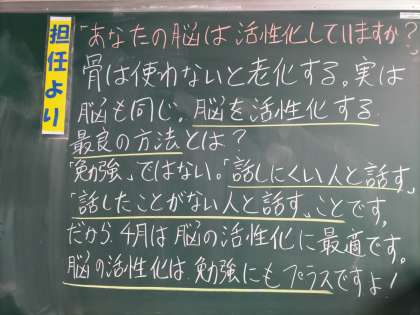 担任より
「あなたの脳は活性化していますか?
骨は使わないと老化する。実は
脳も同じ。脳を活性化する
最良の方法とは?
「勉強」ではない。「話しにくい人と話す」
「話したことがない人と話す」ことです。
だから、4月は脳の活性化に最適です。
脳の活性化は、勉強にもプラスですよ!